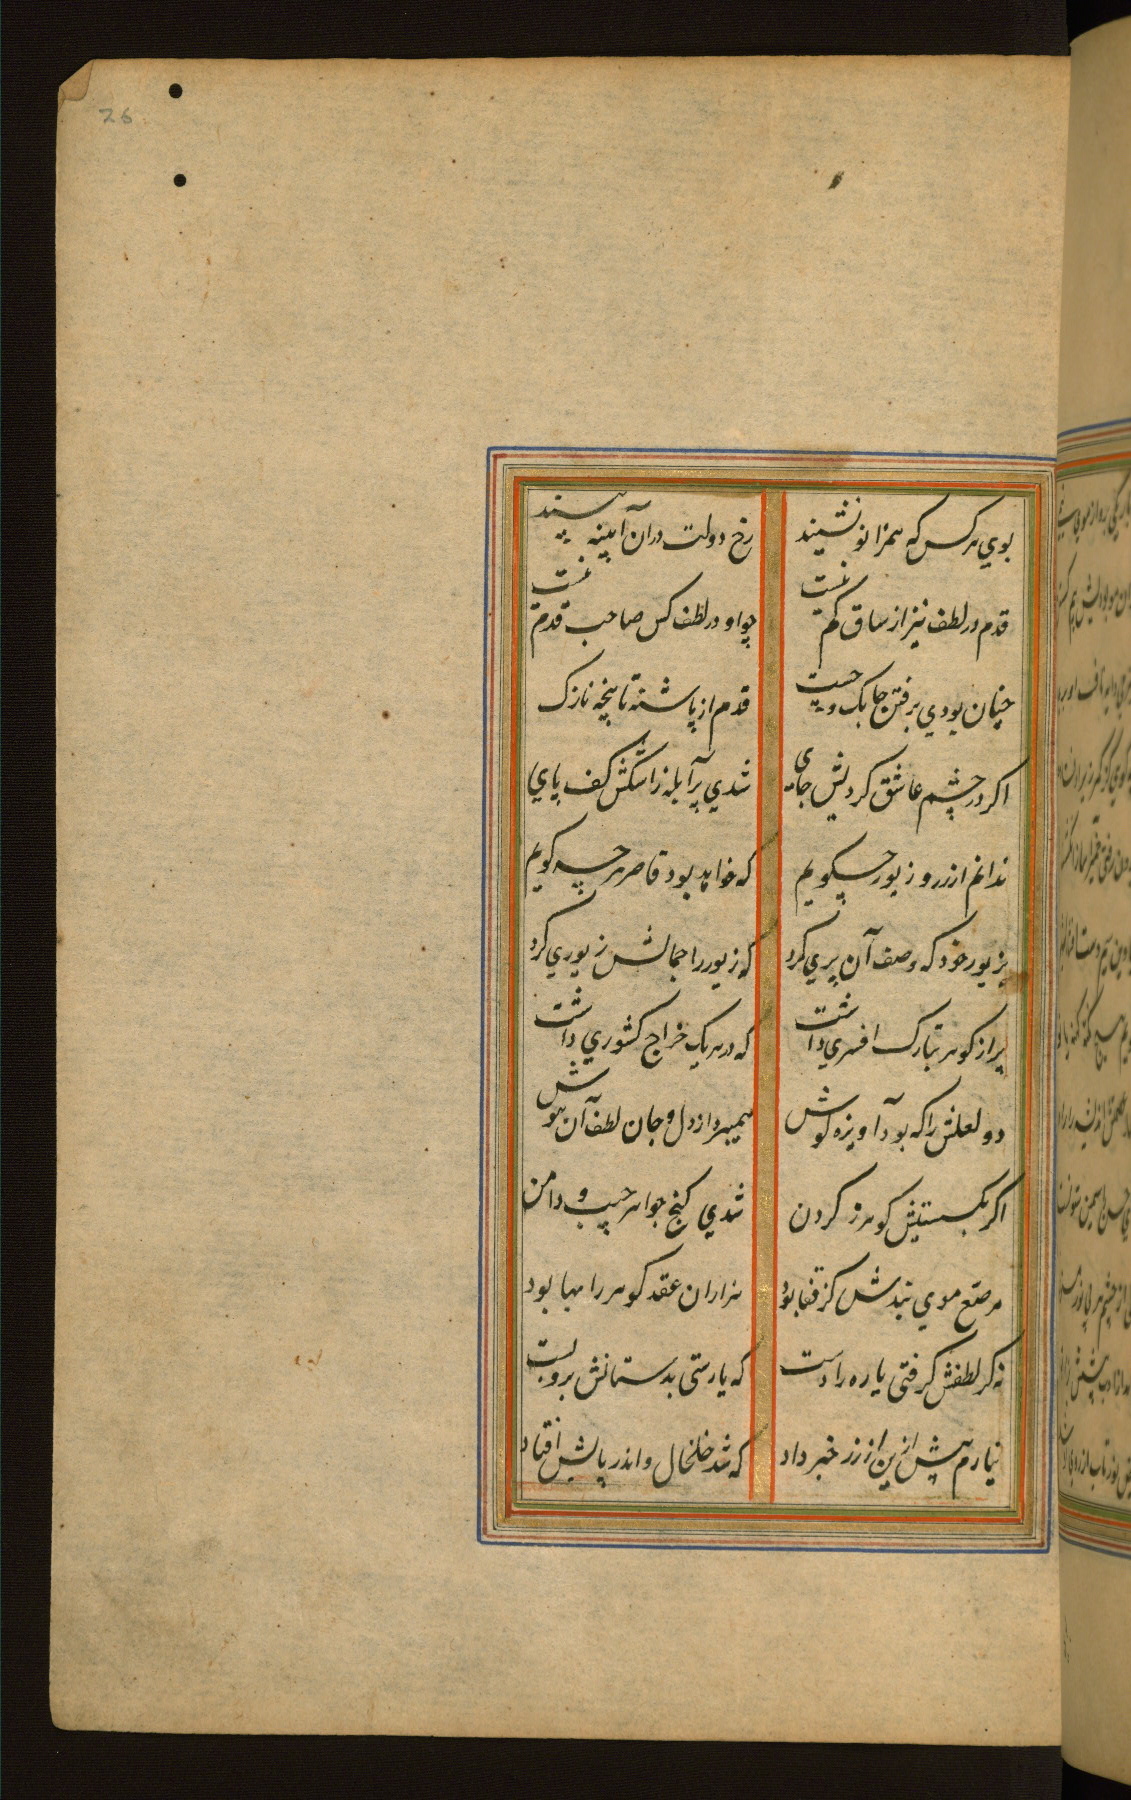 26
بوي هرکس که همزانو نشیند
رخ دولت دران آیینه بیند
قدم در لطف نیز از ساق کم نیست
چو او در لطف کس صاحب قدم نیست
چنان بودي برفتن چابک و چست
قدم از پاشنه تا پنجه نازک
اکر در چشم عاشق کردیش جاي
شدي پر آبله ز اشکش کف پاي
ندانم از زر و زیور چه کویم
که خواهد بود قاصر هرچه کویم
بزیور خود که وصف آن پري کرد
که زیور را جمالش زیوري کرد
پر از کوهر بتارک افسري داشت
که در هر یک خراج کشوري داشت
دو لعلش را که بود آویزه کوش
همیبرد از دل و جان لطف آن هوش
اکر بکسستیش کوهر ز کردن
شدي کنج جواهر جیب و دامن
مرصع موي بندش کز قفا بود
هزاران عقد کوهر را بها بود
نه کر لطفش کرفتی یاره را دست
که یارستی بدستانش برو بست
نیارم بیش ازین از زر خبر داد
که شد خلخال و اندر پایش افتاد